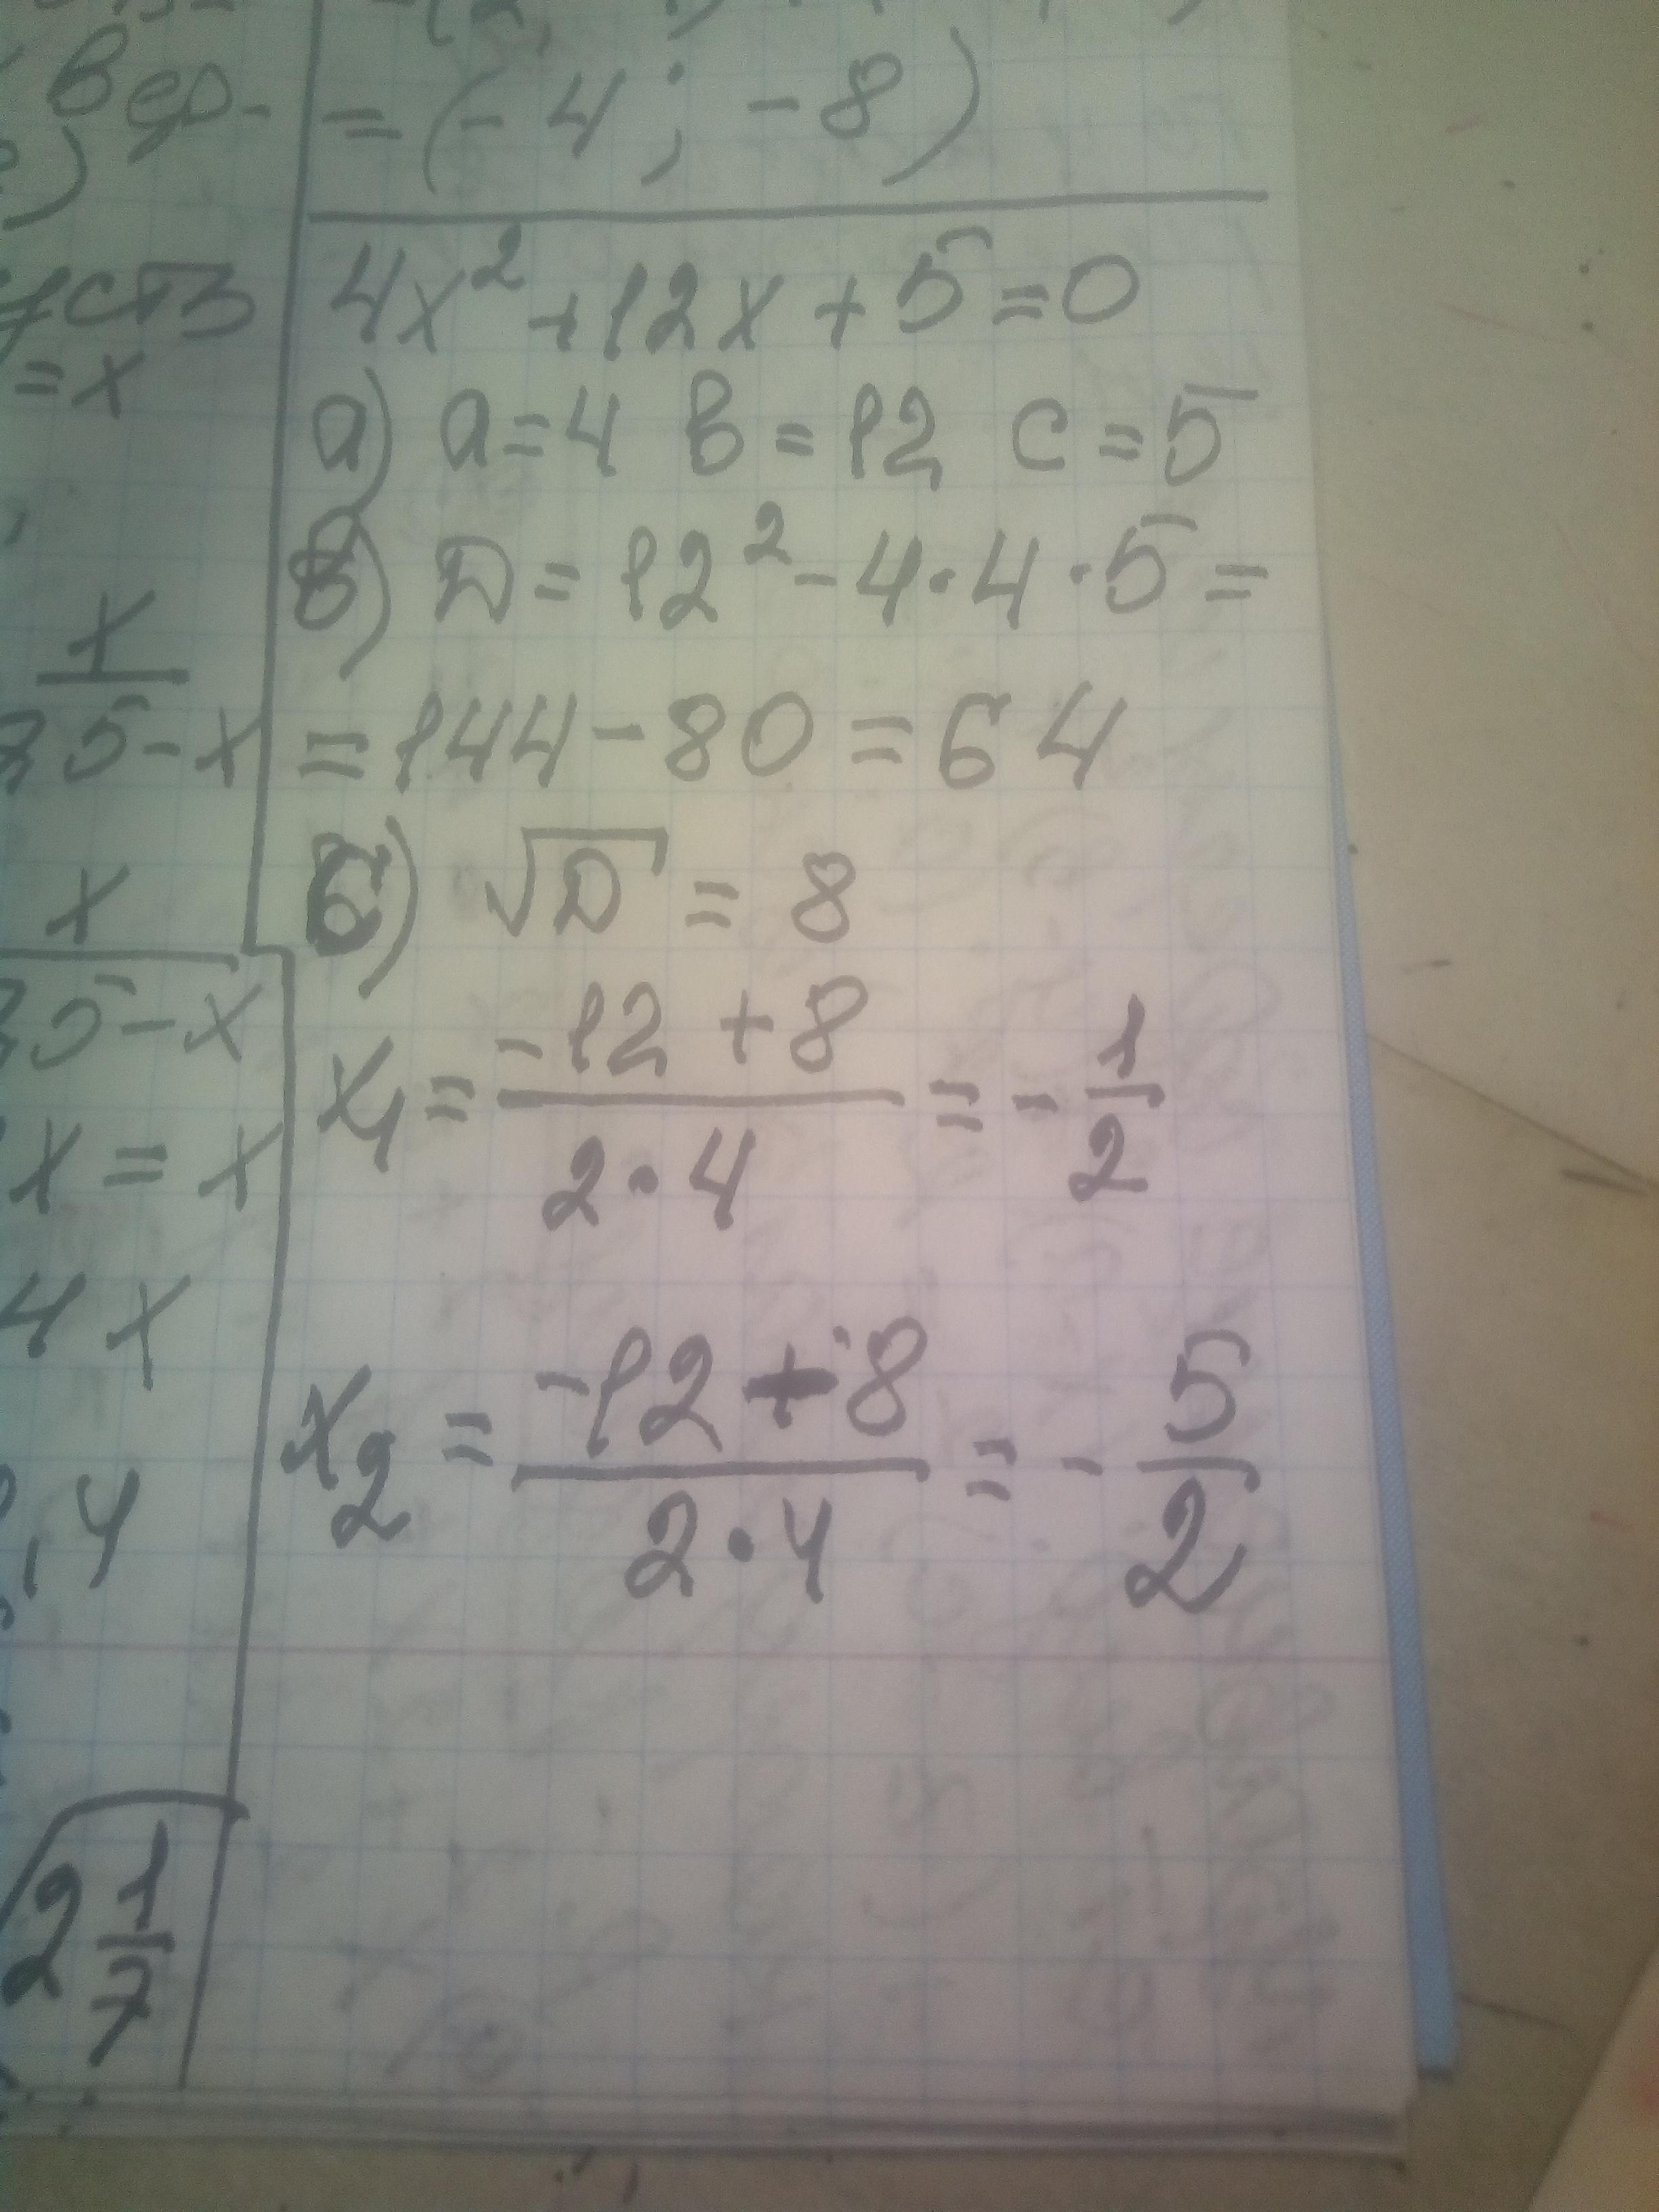 вер-
= (-4; -8)
4x² + 12x + 5 = 0
a) a = 4 в = 12 c = 5
в) D = 12² - 4·4·5 =
= 144 - 80 = 64
c) √D = 8
x₁ = (-12 + 8)/(2·4) = - 1/2
x₂ = (-12 - 8)/(2·4) = - 5/2
= x
x
5 - x
x
5 - x
x = x
4x
,4
2 1/7